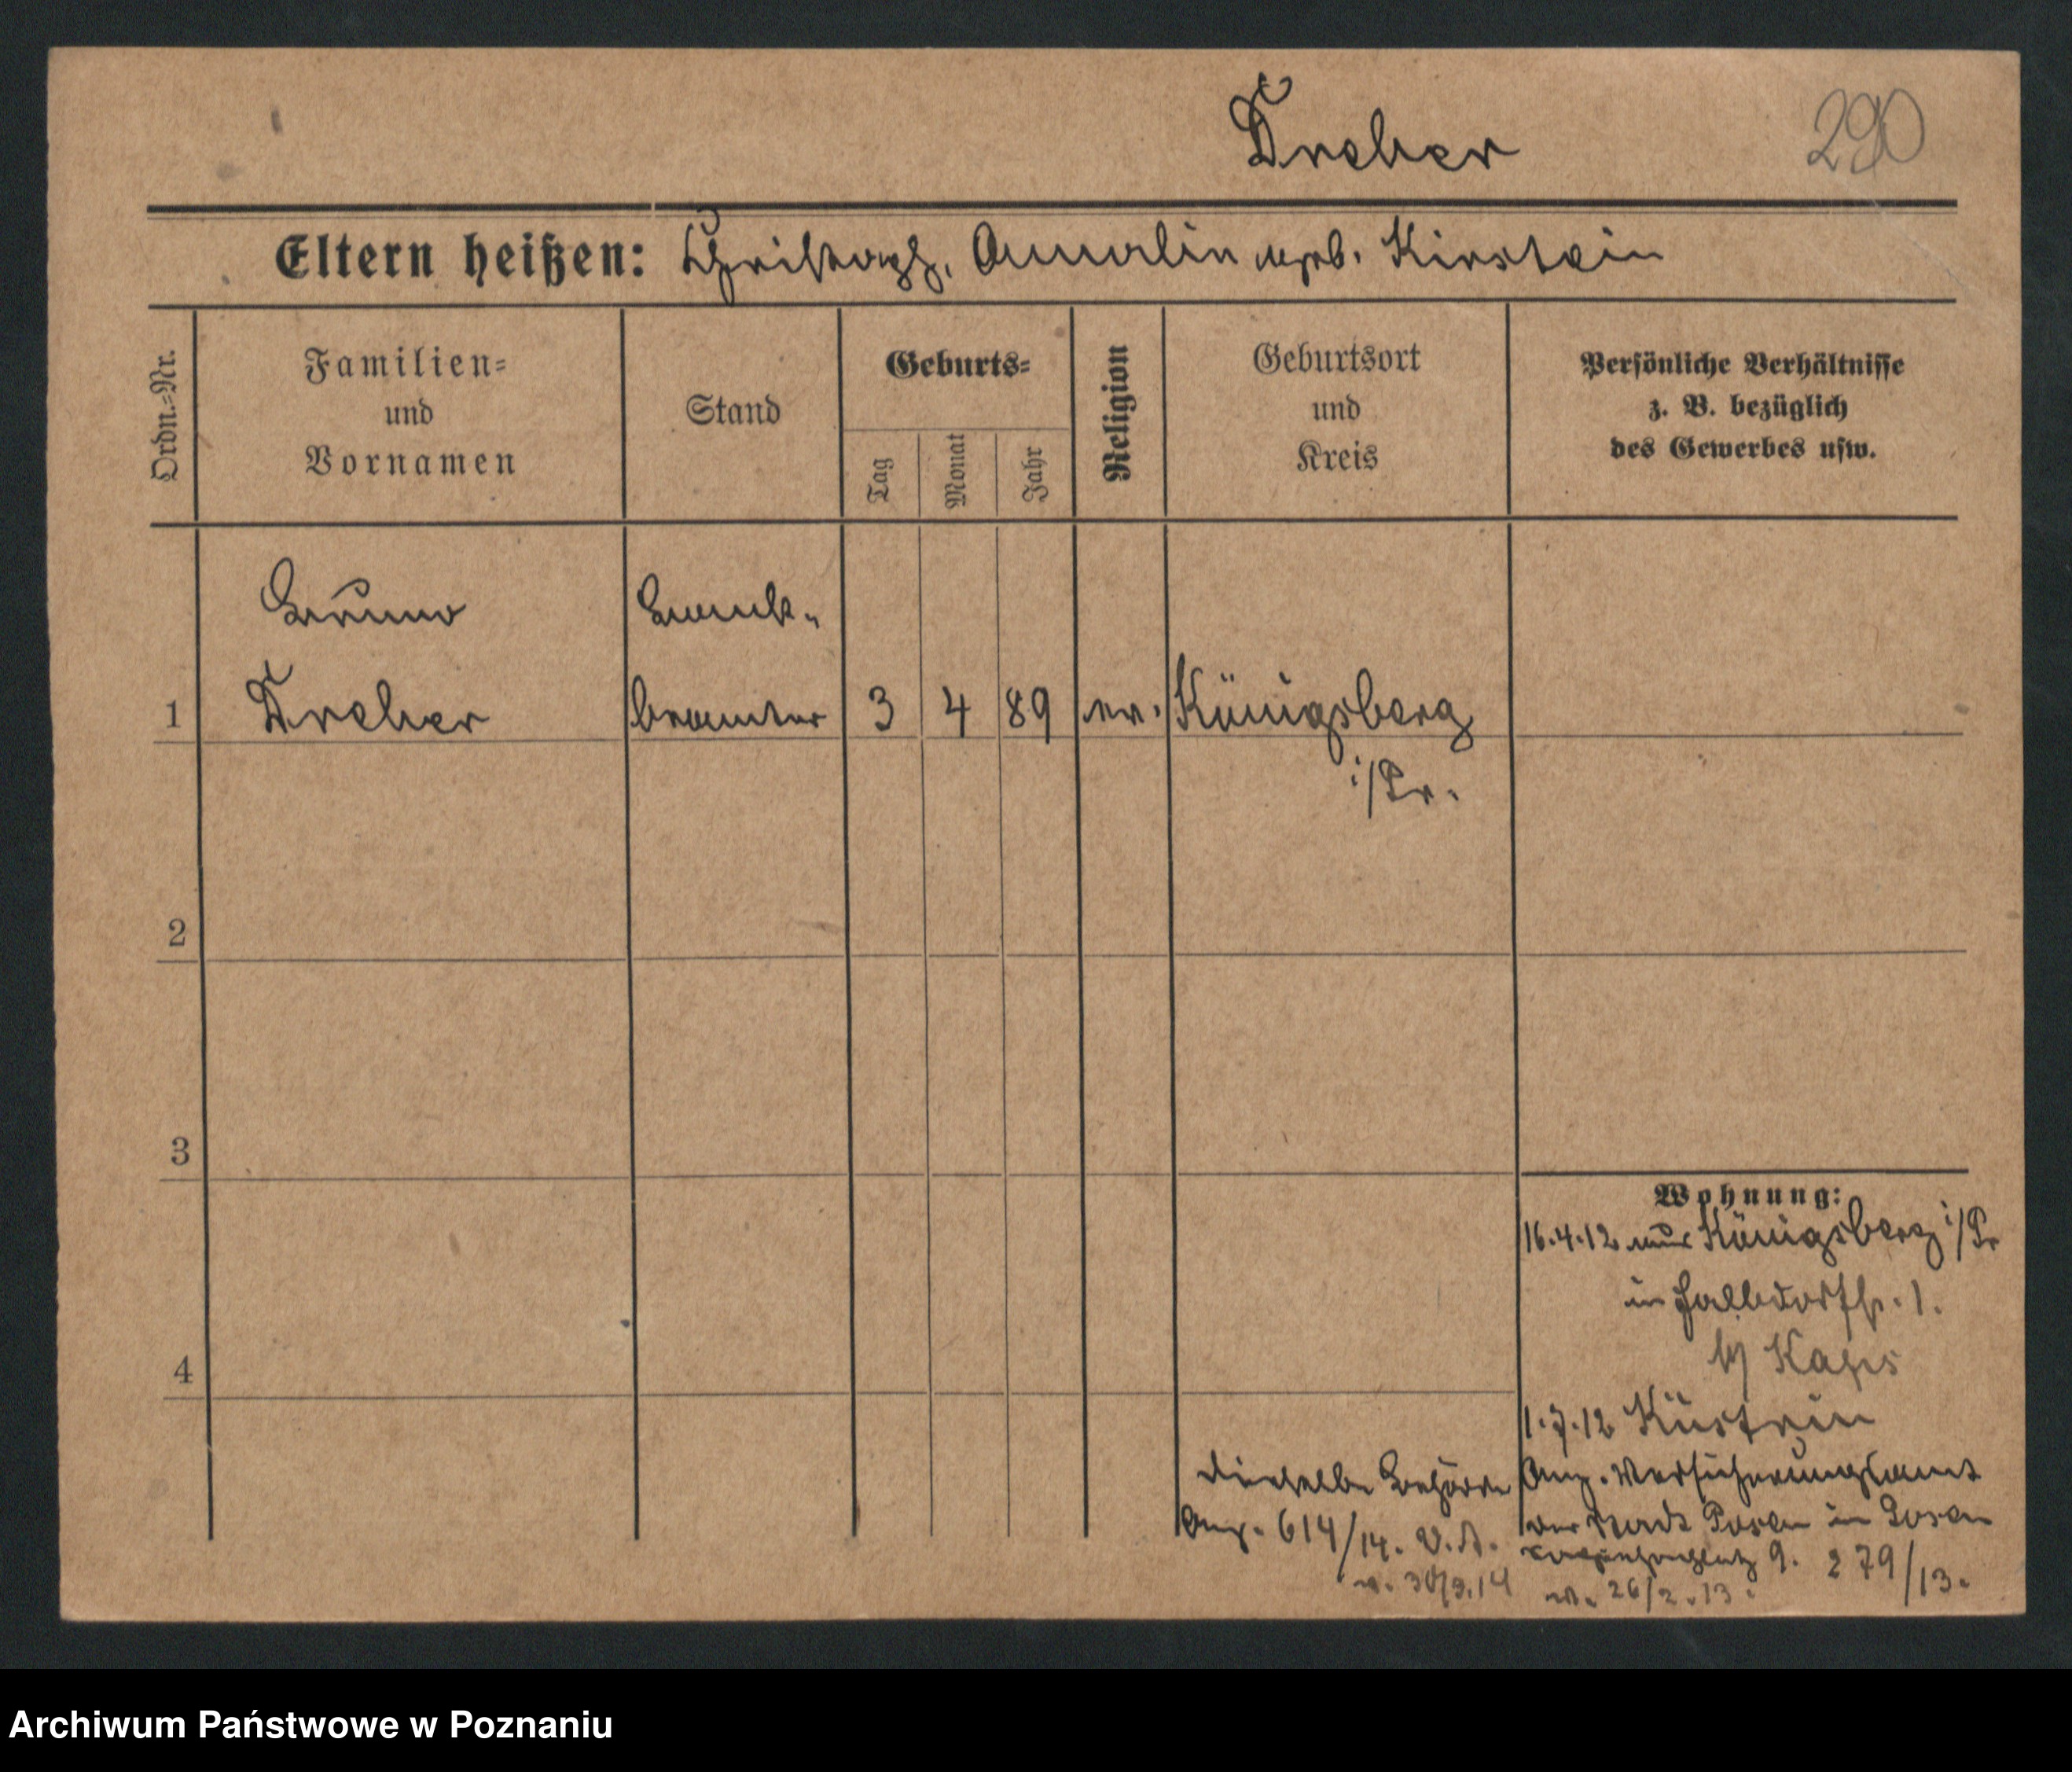 Dreher 290
Eltern heißen: Christoph, Amalie geb. Kirstein
Ordn.-Nr.
Familien-
und
Vornamen
Stand
Geburts-
Tag
Monat
Jahr
Religion
Geburtsort
und
Kreis
Persönliche Verhältnisse
z. B. bezüglich
des Gewerbes usw.
Bruno
Dreher
Bank-
beamter
1 3 4 89 ev. Königsberg
i/Pr.
2
3
4
Wohnung:
16.4.12 aus Königsberg i/Pr
in Halbdorfstr. 1.
b/ Kaps
1.7.12 Küstrin
Anz. Versicherungsamt
der Stadt Posen in Posen
9. 279/13.
26/2.13.
dieselbe Behörde
Anz. 614/14. V.A.
v. 30/9.14
Archiwum Państwowe w Poznaniu